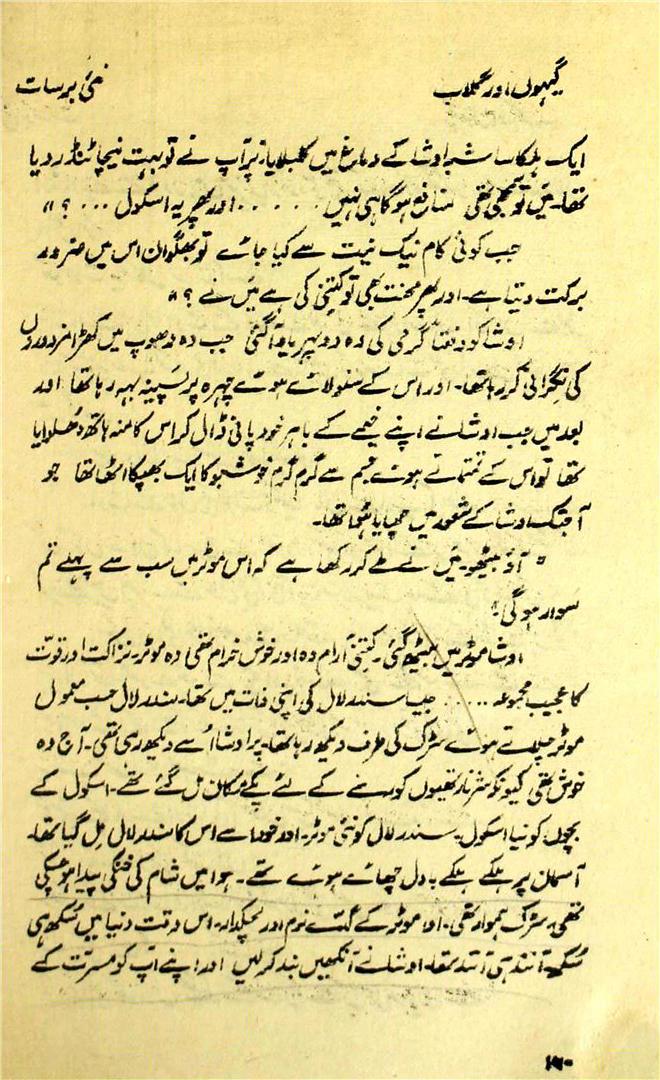 گیہوں اور گلاب
نئی برسات
ایک ہلکا سا شبہ اوشا کے دماغ میں کلبلایا۔ پر آپ نے تو بہت نیچا ٹنڈر دیا
تھا۔ میں تو سمجھی تھی منافع ہو گا ہی نہیں ...... اور پھر یہ اسکول ... ؟"
جب کوئی کام نیک نیت سے کیا جائے تو بھگوان اس میں ضرور
برکت دیتا ہے۔ اور پھر محنت بھی تو کتنی کی ہے میں نے ؟"
اوشا کو دفعتاً گرمی کی وہ دوپہر یاد آگئی جب وہ دھوپ میں کھڑا مزدوروں
کی نگرانی کر رہا تھا۔ اور اس کے سنولائے ہوئے چہرہ پر پسینہ بہہ رہا تھا اور
بعد میں جب اوشا نے اپنے خیمے کے باہر خود پانی ڈال کر اس کا منہ ہاتھ دھلوایا
تھا تو اس کے تمتماتے ہوئے جسم سے گرم گرم خوشبو کا ایک بھپکا اٹھا تھا جو
آجتک اوشا کے شعور میں چھپایا ہوا تھا۔
" آؤ بیٹھو۔ میں نے طے کر رکھا ہے کہ اس موٹر میں سب سے پہلے تم
سوار ہو گی"
اوشا موٹر میں بیٹھ گئی۔ کتنی آرام دہ اور خوش خرام تھی وہ موٹر۔ نزاکت اور قوت
کا عجیب مجموعہ ..... جیسا سندر لال کی اپنی ذات میں تھا۔ سندر لال حسب معمول
موٹر چلاتے ہوئے سڑک کی طرف دیکھ رہا تھا۔ پر اوشا اُسے دیکھ رہی تھی۔ آج وہ
خوش تھی کیونکہ شرنارتھیوں کو رہنے کے لئے پکے مکان مل گئے تھے۔ اسکول کے
بچوں کو نیا اسکول۔ سندر لال کو نئی موٹر۔ اور خود اسے اس کا سندر لال مل گیا تھا۔
آسمان پر ہلکے ہلکے بادل چھائے ہوئے تھے۔ ہوا میں شام کی خنکی پیدا ہو چکی
تھی۔ سڑک ہموار تھی۔ اور موٹر کے گدے نرم اور لچکدار۔ اس وقت دنیا میں سُکھ ہی
سُکھ آنند ہی آنند تھا۔ اوشا نے آنکھیں بند کر لیں اور اپنے آپ کو مسرت کے
۱۷۰